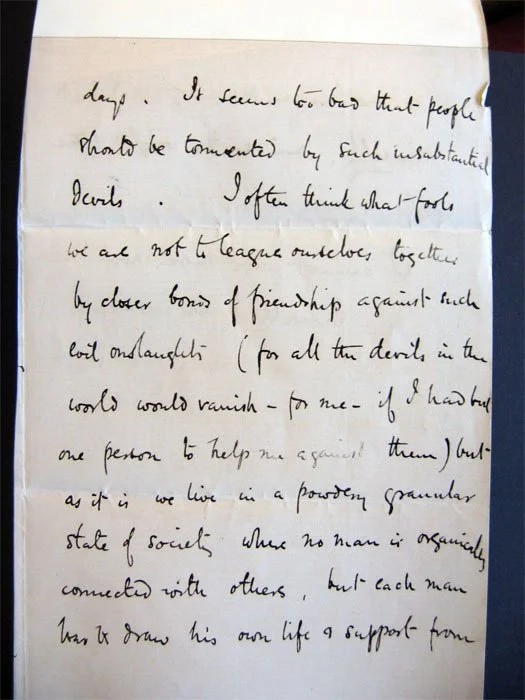 days. It seems too bad that people
should be tormented by such insubstantial
devils. I often think what fools
we are not to league ourselves together
by closer bonds of friendship against such
evil onslaughts (for all the devils in the
world would vanish - for me - if I had but
one person to help me against them) but
as it is we live in a powdery granular
state of society where no man is organically
connected with others, but each man
has to draw his own life & support from